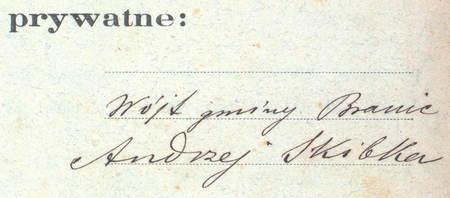 prywatne:
Wójt gminy Branic
Andrzej Skibka